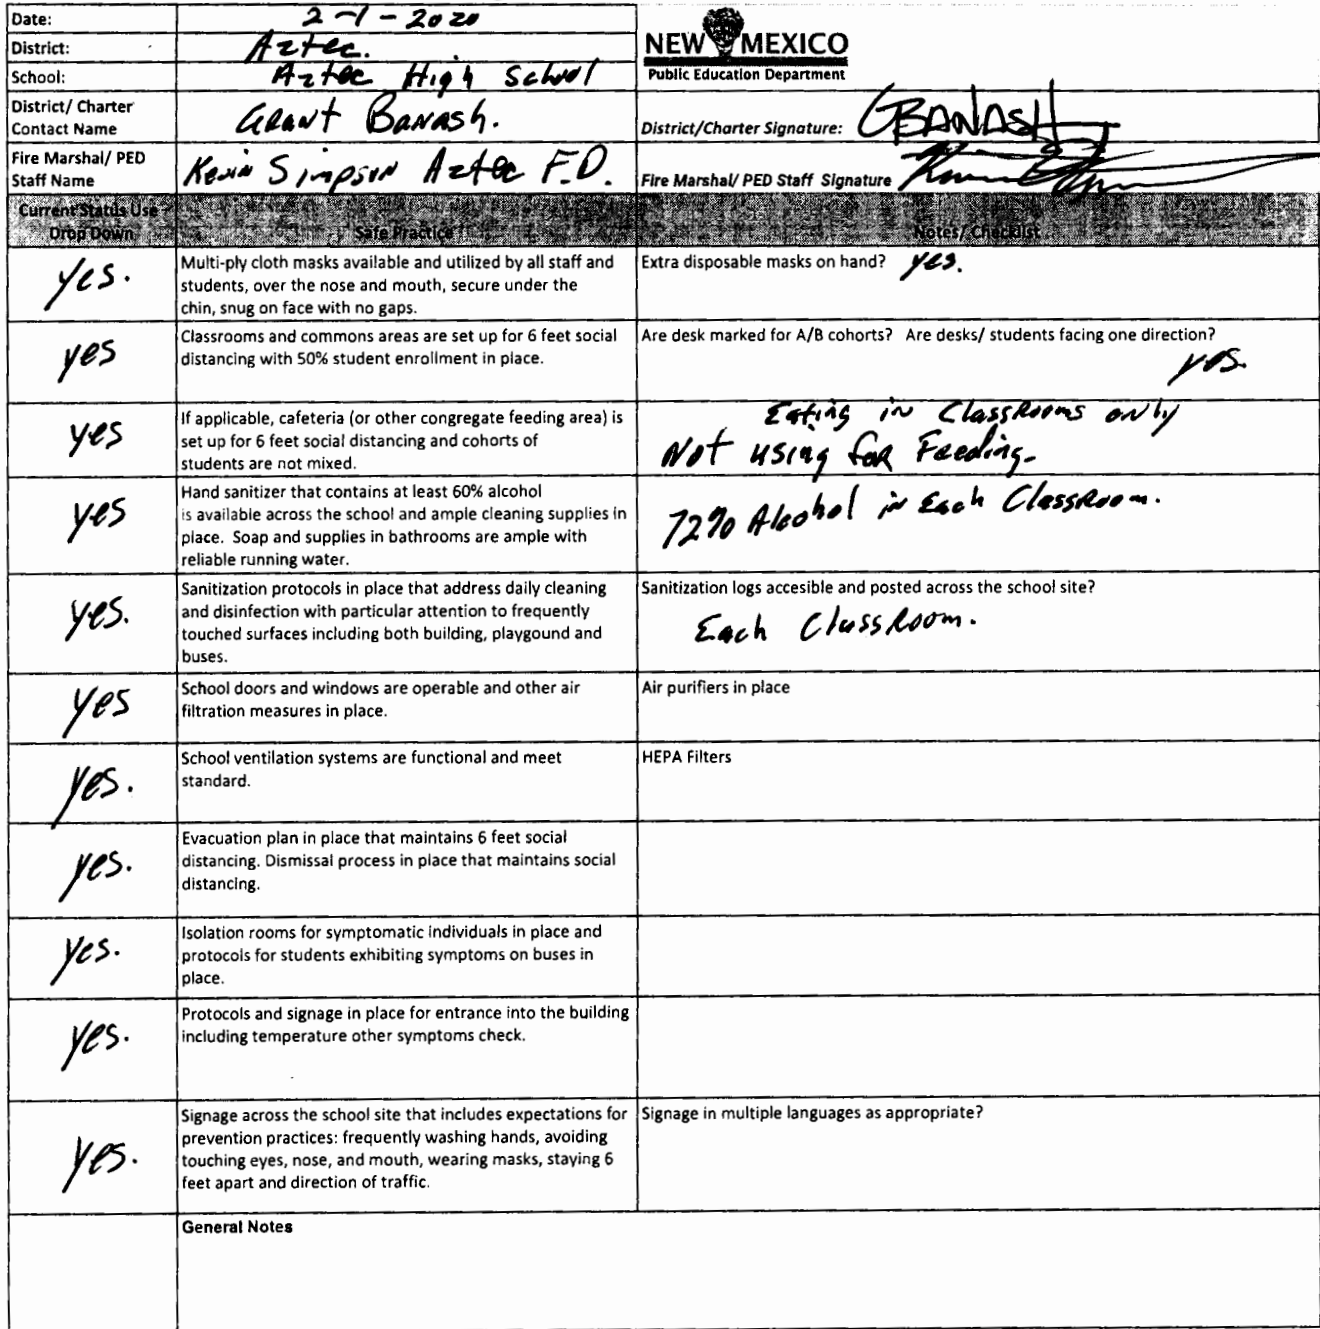 Date: 2-1-2020
District: Aztec.
School: Aztec High School
NEW MEXICO
Public Education Department
District/ Charter
Contact Name
Grant Banash.
District/Charter Signature: GBANASH
Fire Marshal/ PED
Staff Name
Kevin Simpson Aztec F.D.
Fire Marshal/ PED Staff Signature
Current Status Use
Drop Down
Safe Practice
Notes/ Checklist
yes.
Multi-ply cloth masks available and utilized by all staff and
students, over the nose and mouth, secure under the
chin, snug on face with no gaps.
Extra disposable masks on hand? yes.
yes
Classrooms and commons areas are set up for 6 feet social
distancing with 50% student enrollment in place.
Are desk marked for A/B cohorts? Are desks/ students facing one direction?
yes.
yes
If applicable, cafeteria (or other congregate feeding area) is
set up for 6 feet social distancing and cohorts of
students are not mixed.
Eating in Classrooms only
Not using for Feeding.
yes
Hand sanitizer that contains at least 60% alcohol
is available across the school and ample cleaning supplies in
place. Soap and supplies in bathrooms are ample with
reliable running water.
72% Alcohol in Each Classroom.
yes.
Sanitization protocols in place that address daily cleaning
and disinfection with particular attention to frequently
touched surfaces including both building, playgound and
buses.
Sanitization logs accesible and posted across the school site?
Each Classroom.
yes
School doors and windows are operable and other air
filtration measures in place.
Air purifiers in place
yes.
School ventilation systems are functional and meet
standard.
HEPA Filters
yes.
Evacuation plan in place that maintains 6 feet social
distancing. Dismissal process in place that maintains social
distancing.
yes.
Isolation rooms for symptomatic individuals in place and
protocols for students exhibiting symptoms on buses in
place.
yes.
Protocols and signage in place for entrance into the building
including temperature other symptoms check.
yes.
Signage across the school site that includes expectations for
prevention practices: frequently washing hands, avoiding
touching eyes, nose, and mouth, wearing masks, staying 6
feet apart and direction of traffic.
Signage in multiple languages as appropriate?
General Notes